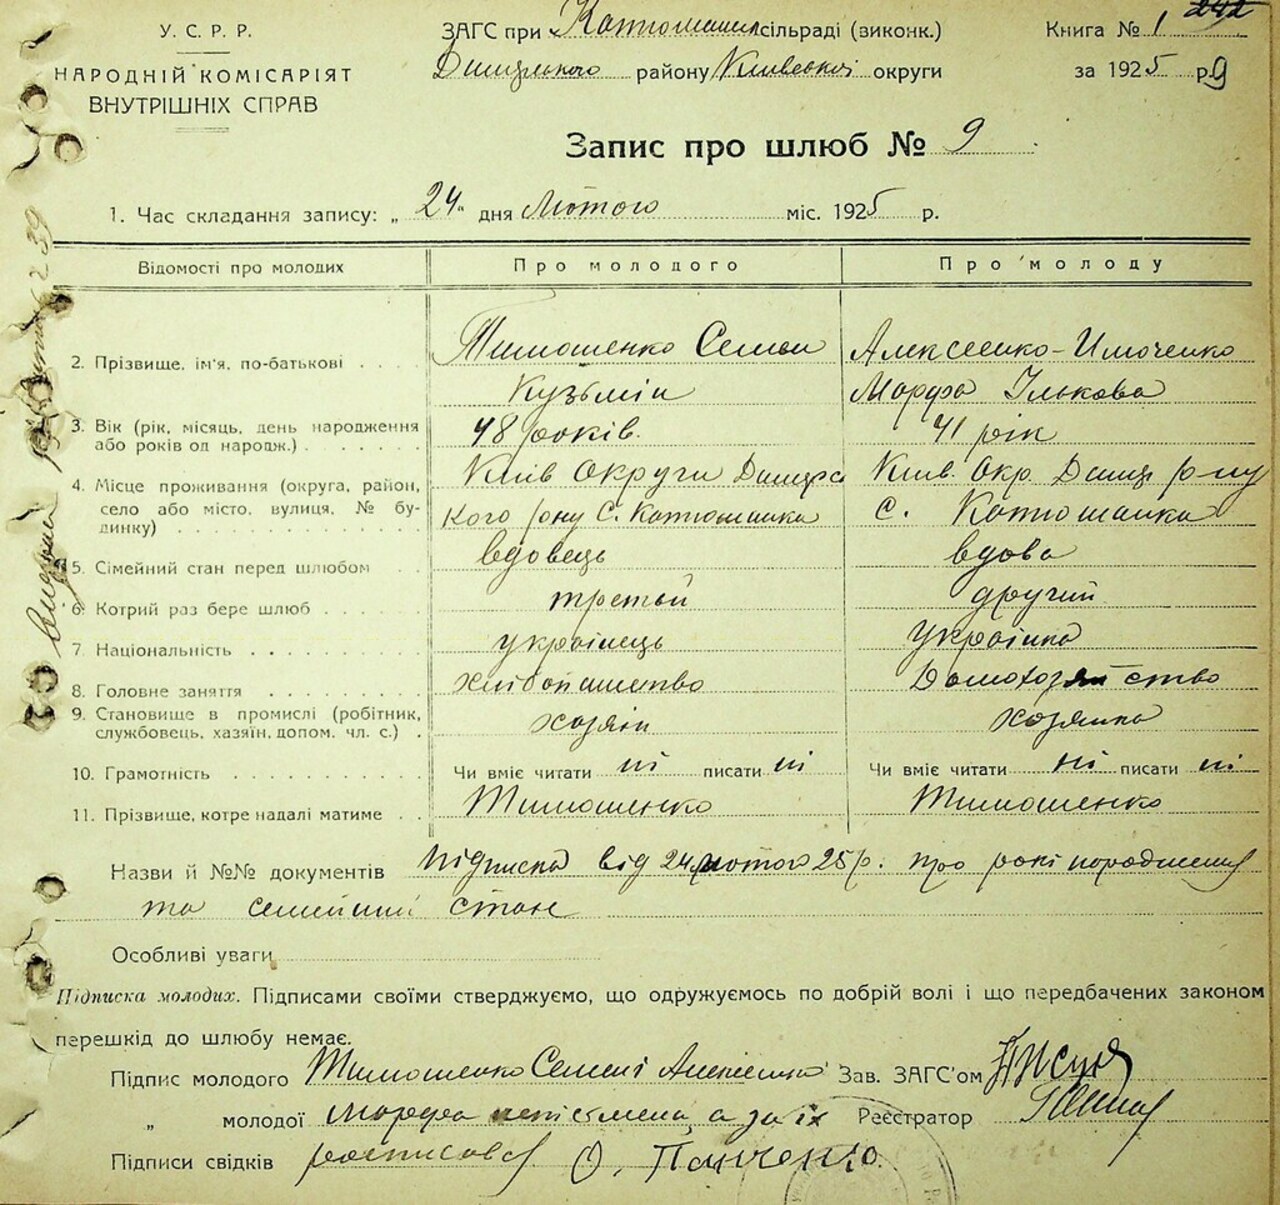 У. С. Р. Р.
НАРОДНІЙ КОМІСАРІЯТ
ВНУТРІШНІХ СПРАВ
ЗАГС при Катюшанк сільраді (виконк.)
Димерського району Київської округи
Книга № 1 242
за 1925 р. 9
Запис про шлюб № 9
1. Час складання запису: „ 24 " дня Лютого міс. 1925 р.
Відомості про молодих Про молодого Про молоду
2. Прізвище, ім'я, по-батькові . . . . Тимошенко Семен Алексеенко-Имоченко
Кузьмін Марфа Ількова
3. Вік (рік, місяць, день народження 48 років. 41 рік
або років од народж.) . . . . . .
4. Місце проживання (округа, район, Київ Округи Димерс Київ. Окр. Димер р-ну
село або місто, вулиця, № бу- кого рону С. Катюшанка С. Катюшанка
динку) . . . . . . . . . . . . .
5. Сімейний стан перед шлюбом . . вдовець вдова
6. Котрий раз бере шлюб . . . . . третьй другий
7 Національність . . . . . . . . . українець Українка
8. Головне заняття . . . . . . . . хлібопашество Домохозяйство
9. Становище в промислі (робітник, хозяін хозяйка
службовець, хазяїн, допом. чл. с.) .
10. Грамотність . . . . . . . . . . Чи вміє читати ні писати ні Чи вміє читати ні писати ні
11. Прізвище, котре надалі матиме . . Тимошенко Тимошенко
Назви й №№ документів підписка від 24 лютого 25 р. про рокі народження
та семейний стан
Особливі уваги
Підписка молодих. Підписами своїми стверджуємо, що одружуємось по добрій волі і що передбачених законом
перешкід до шлюбу немає.
Підпис молодого Тимошенко Семен Алексеенко Зав. ЗАГС'ом
„ молодої Марфа непісьмена, а за іх Реєстратор
Підписи свідків росписався О. Панченко.